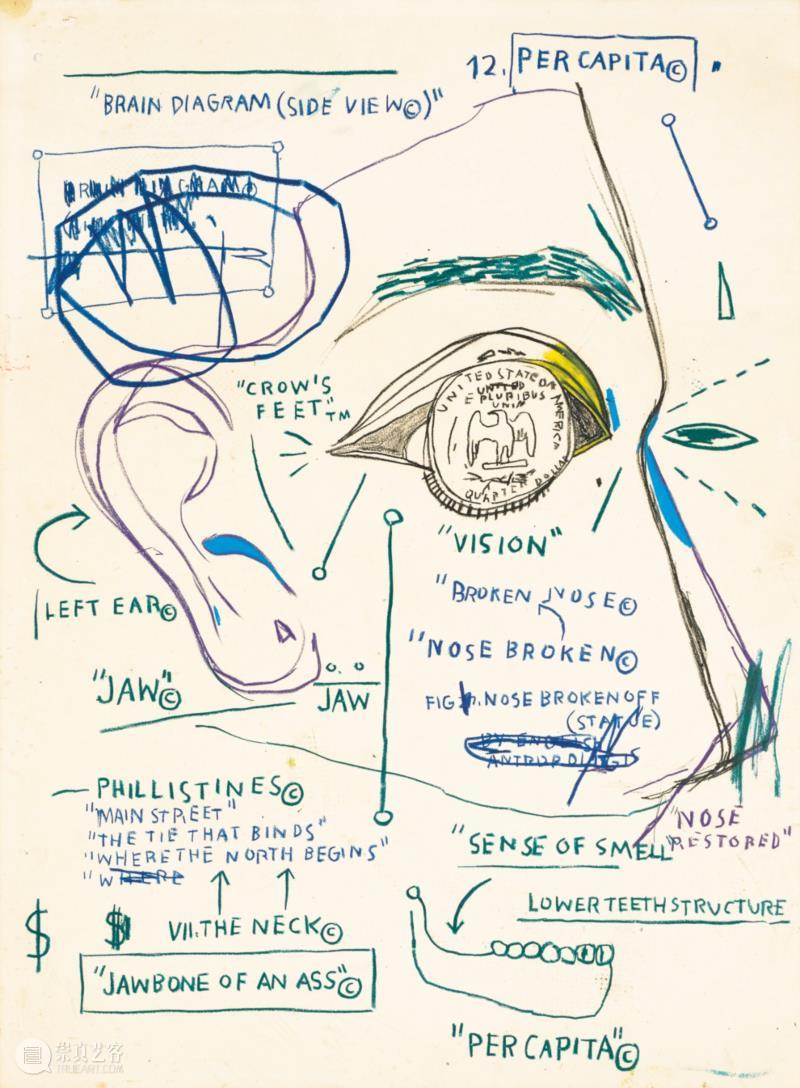 12. PER CAPITA©
"BRAIN DIAGRAM (SIDE VIEW©)"
"CROW'S
FEET"TM
UNITED STATES OF AMERICA
UNITED
E PLURIBUS
UNUM
QUARTER DOLLAR
"VISION"
"BROKEN NOSE©
"NOSE BROKEN©
FIG. NOSE BROKEN OFF
(STATUE)
BY ENGLISH
LEFT EAR©
"JAW"©
JAW
PHILLISTINES©
"MAIN STREET"
"THE TIE THAT BINDS"
"WHERE THE NORTH BEGINS"
"WHERE
$ $ VII. THE NECK©
"JAWBONE OF AN ASS"©
"SENSE OF SMELL"
"NOSE
RESTORED"
LOWER TEETH STRUCTURE
"PER CAPITA"©
崇真艺客
TRUEART.COM